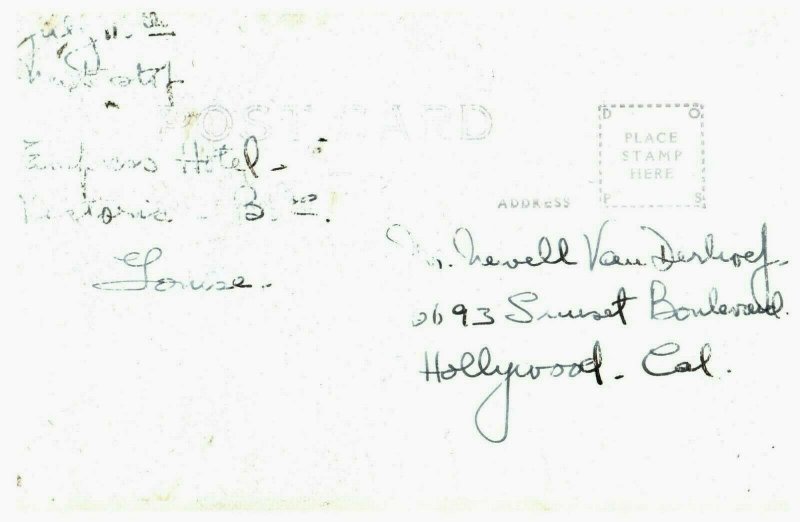 July 11.th
POST CARD
Empress Hotel -
Victoria - B.C.
Louise.
D O
PLACE
STAMP
HERE
P S
ADDRESS
Mr. Newell Van Derhoef.
93 Sunset Boulevard.
Hollywood. Cal.